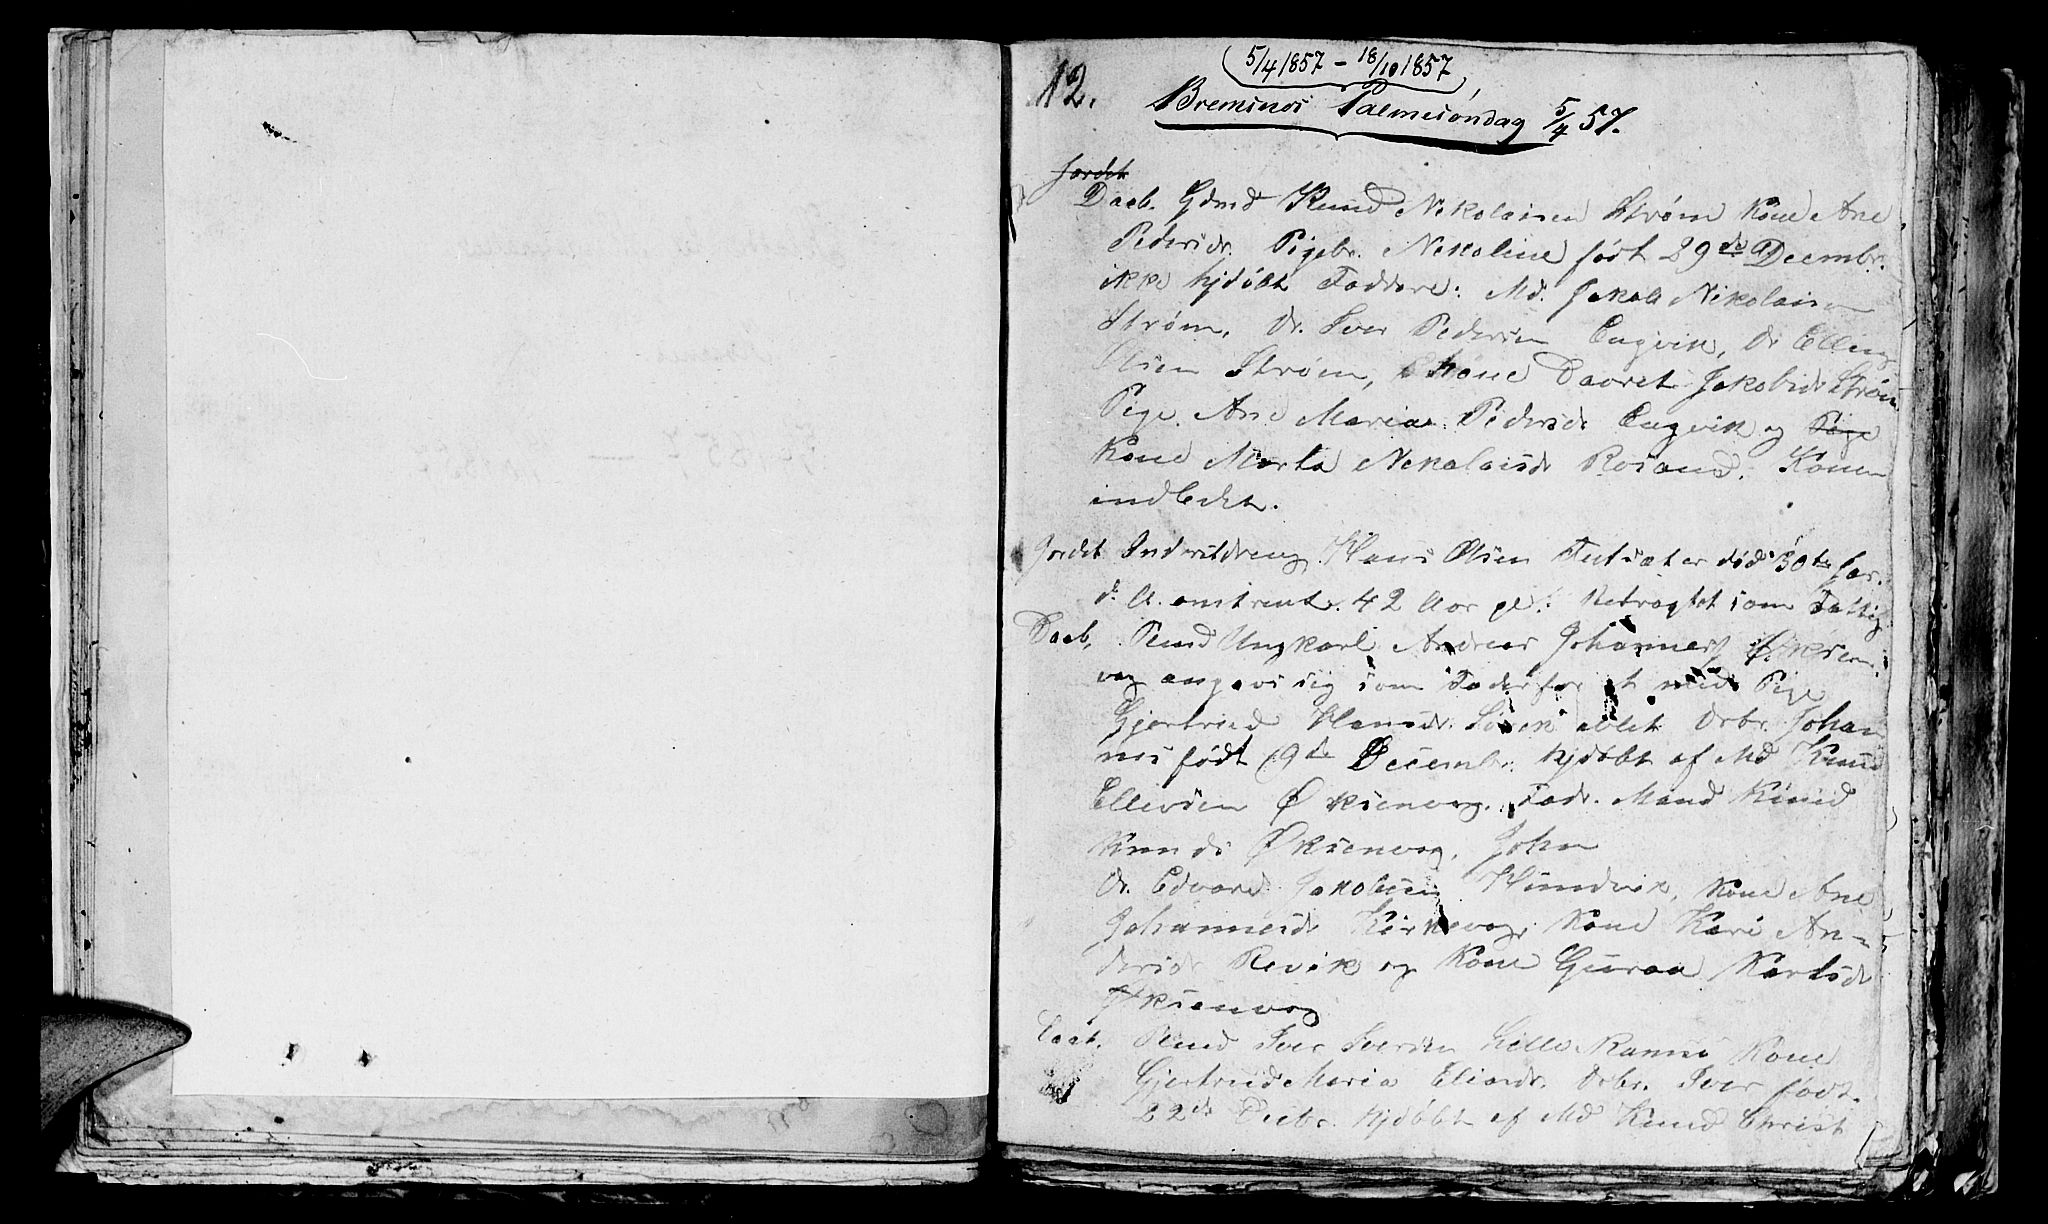 (5/4 1857 – 18/10 1857)
12.
Bremsnes Palmesøndag 5/4 57.
Jordet
Daab. Gdmd Knud Nikolaisen Strøm Kone Ane
Pedersdr. Pigebr. Nikoline født 29de Decembr.
ikke hjdøbt Faddere: Md. Jakob Nikolaisen
Strøm, Do. Iver Pedersen Engvik, Do Elling
Olsen Strøm, Kone Davret Jakobsdr Strøm
Pige Ane Maria Pedersdr Engvik og Pige
Kone Marta Nikolaisdr Rosand. Konen
indledet.
Jordet Inderstdreng Hans Olsen Futsæter død 30te
d. A. omtrent 42 Aar gl. Betragtet som Fattig
Daab. Ungkarl Andreas Johannes Øksen-
vog angavs sig som Fader for et med Pige
Gjertrud Hansdr. avlet Drbr. Johan
nes født 19de Decembr. hjdøbt af Md Knud
Ellevsen Øksenvog. Fadr. Mand Knud
Knuds Øksenvog, John
Do. Edvard Jakobsen Hundvik, Kone Ane
Johannesdr Kirkevog, Kone Kari An-
dersdr Revik og Kone Guraa Karlsdr
Øksenvog
Daab. Iver Iversen Lille Ramsø Kone
Gjertrud Maria Eliasdr. Drbr. Iver født
22de Decbr. hjdøbt af Md Knud Christ